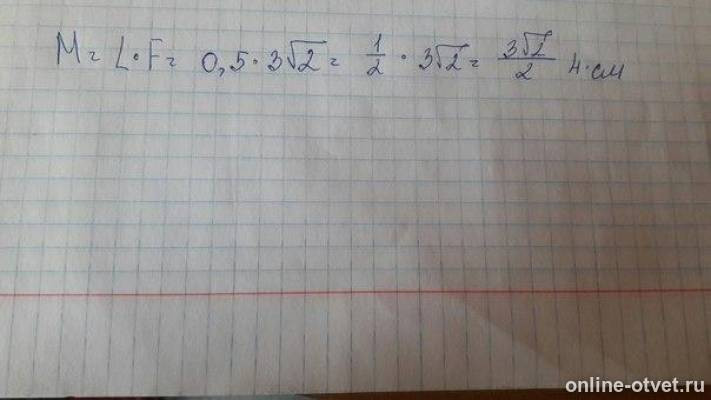 M = L · F = 0,5 · 3√2 = 1/2 · 3√2 = 3√2/2 Н·см
online-otvet.ru